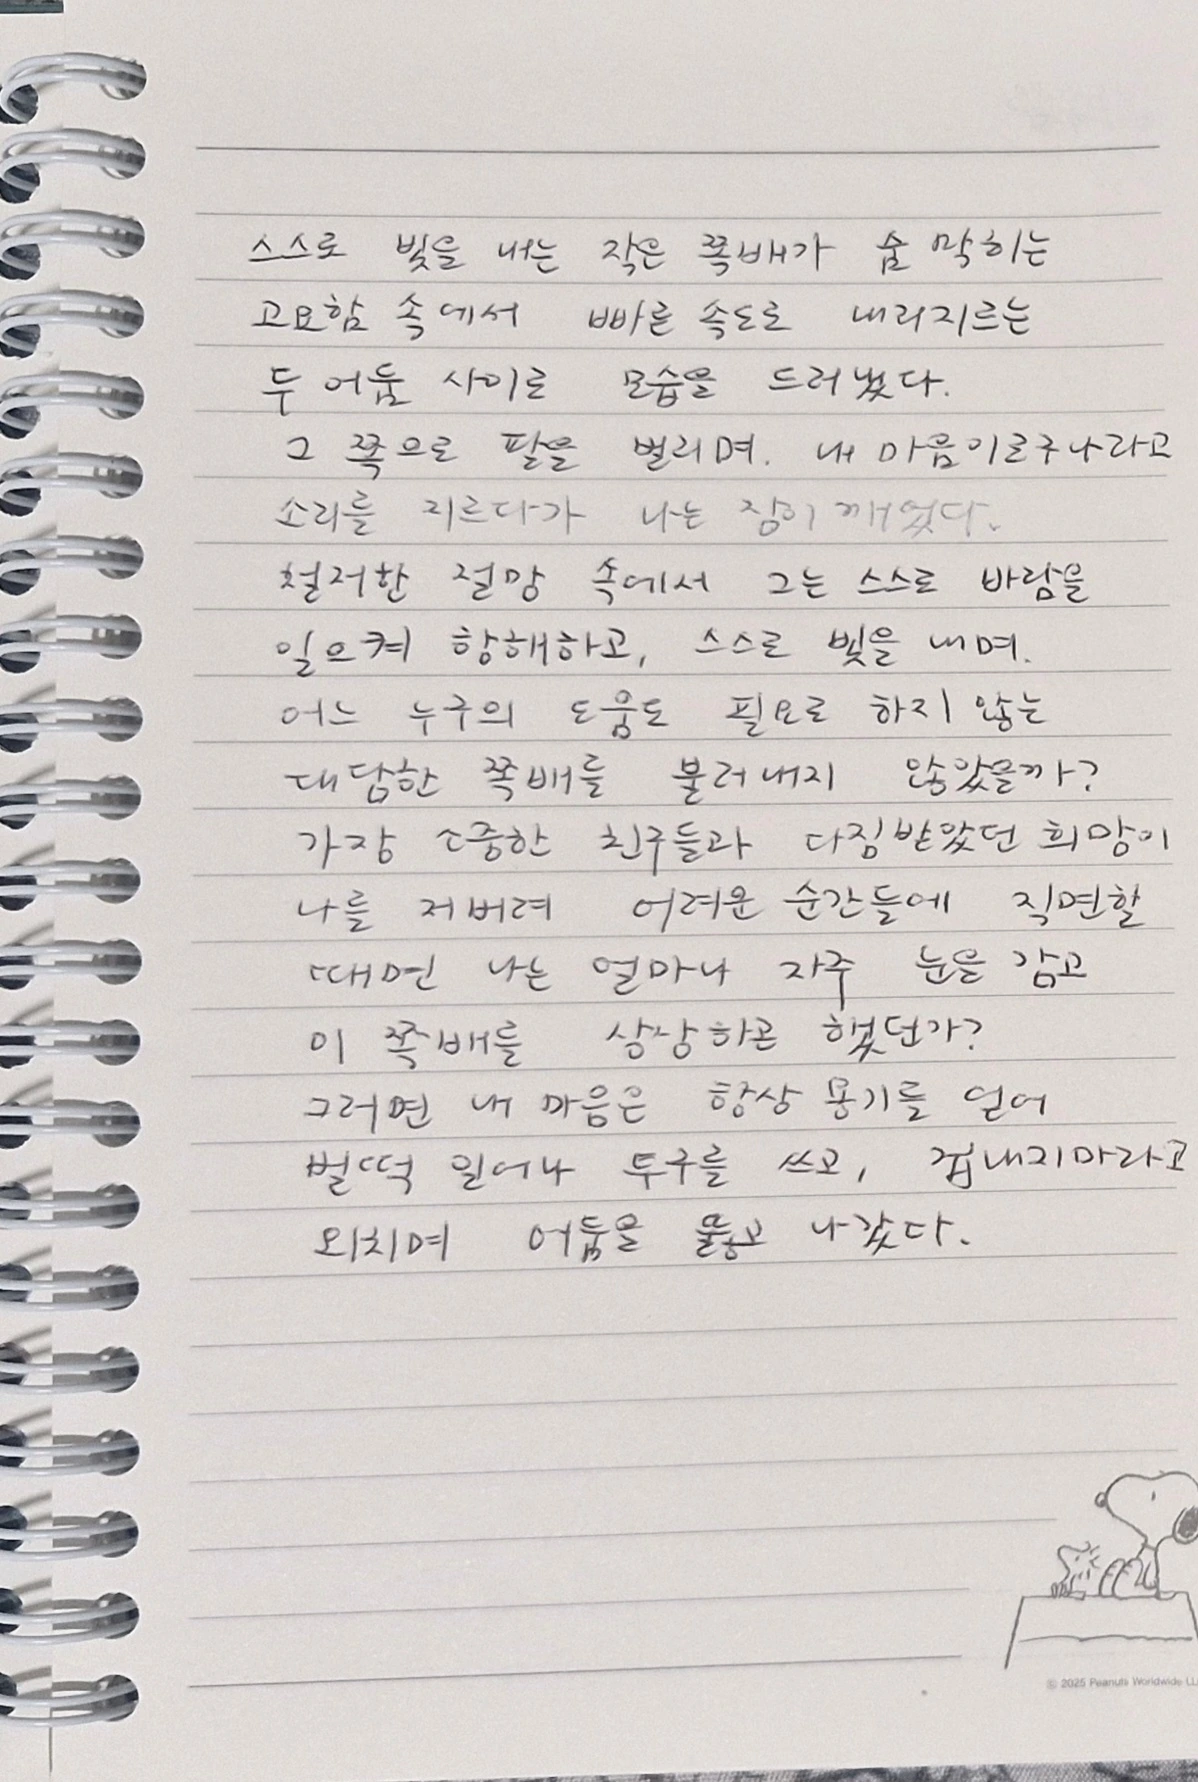 스스로 빛을 내는 작은 쪽배가 숨 막히는
고요함 속에서 빠른 속도로 내리지르는
두 어둠 사이로 모습을 드러냈다.
그 쪽으로 팔을 벌리며. 내 마음이로구나라고
소리를 지르다가 나는 잠이 깨었다.
철저한 절망 속에서 그는 스스로 바람을
일으켜 항해하고, 스스로 빛을 내며.
어느 누구의 도움도 필요로 하지 않는
대담한 쪽배를 불러내지 않았을까?
가장 소중한 친구들과 다짐받았던 희망이
나를 저버려 어려운 순간들에 직면할
때면 나는 얼마나 자주 눈을 감고
이 쪽배를 상상하곤 했던가?
그러면 내 마음은 항상 용기를 얻어
벌떡 일어나 투구를 쓰고, 겁내지마라고
외치며 어둠을 뚫고 나갔다.
© 2025 Peanuts Worldwide LL